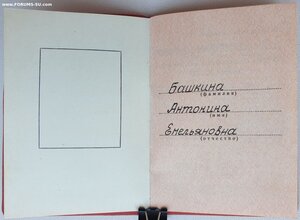 www.FORUMS-SU.com
Башкина
(фамилия)
Антонина
(имя)
Емельяновна
(отчество)